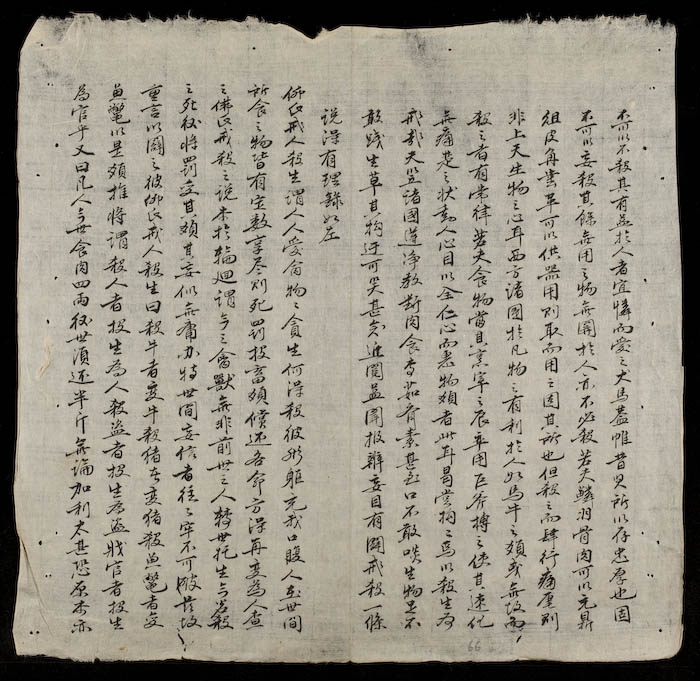 不可以不殺其有益於人者宜憐而愛之犬馬蓋帷昔賢所以存忠厚也固
不可以妄殺其餘無用之物無關於人亦不必殺若夫鱗羽骨肉可以充鼎
俎皮角革可以供器用則取而用之固其所也但殺之而肆行痛虐則
非上天生物之心耳西方諸國於凡物之有利於人如馬牛之類或無故而
殺之者有常律若夫食物當其烹宰之辰率用巨斧搏之使其速化
無痛楚之狀動人心目以全仁心而物類者此耳曷嘗拘々焉以殺生為
戒哉天竺諸國道淨教斷肉食香茹齋素甚至口不敢啖生物足不
敢踐生草其拘迂可哭甚矣近閱益聞报辨妄目有闢戒殺一條
說得有理錄如左
佛氏戒人殺生謂人人愛命物々貪生何得殺彼形軀充我口腹人在世間
所食之物皆有定數享尽則死罰投畜類償还各命方得再变為人查
之佛氏戒殺之說本於輪迴謂今之禽獸無非前世之人轉世托生今若殺
之死後將罰变其類其妄似無庸办特世間妄信者徃々牢不可破茲故
重言以闢之彼佛氏戒人殺生曰殺牛者变牛殺猪者变猪殺魚鱉者变
魚鱉以是類推將謂殺人者投生為人殺盜者投生為盜戕官者投生
為官乎又曰凡人今世食肉四兩後世須还半斤無論加利太甚恐原本亦
66